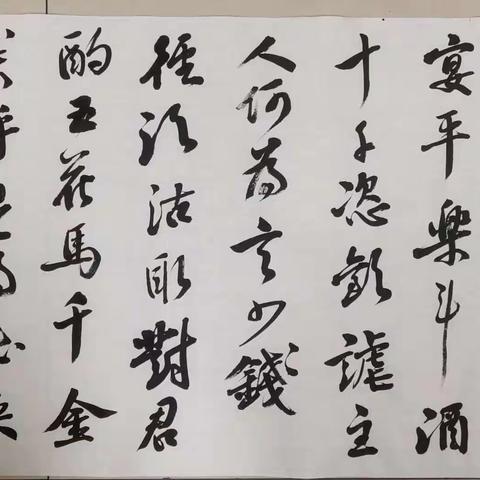 宴平樂斗酒
十千恣歡謔主
人何為言少錢
徑須沽取對君
酌五花馬千金